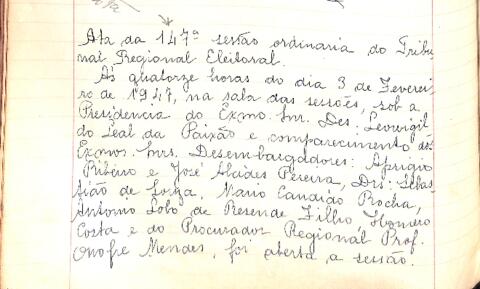 Ata da 147ª sessão ordinaria do Tribu
nal Regional Eleitoral.
Ás quatorze horas do dia 3 de Feverei
ro de 1947, na sala das sessões, sob a
Presidencia do Exmo. Snr. Des. Leovigil
do Leal da Paixão e comparecimento dos
Exmos. Snrs. Desembargadores: Aprigio
Ribeiro e José Alcides Pereira, Drs. Sebas
tião de Souza, Mario Candido Rocha,
Antonio Lobo de Resende Filho, Homero
Costa e do Procurador Regional Prof.
Onofre Mendes, foi aberta a sessão.